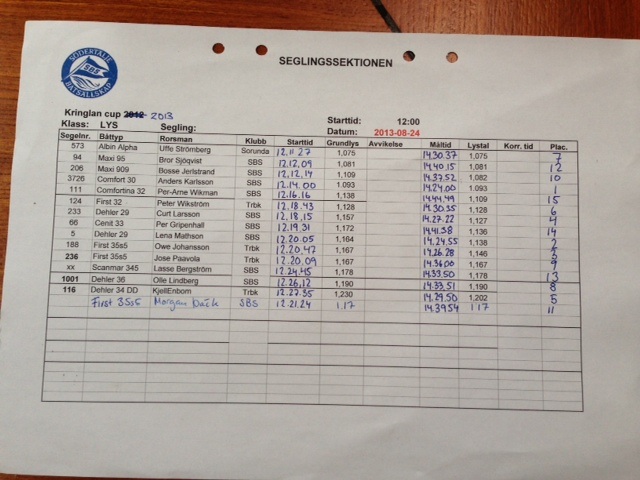 SÖDERTÄLJE
SBS
BÅTSÄLLSKAP
SEGLINGSSEKTIONEN
Kringlan cup 2012 2013 Starttid: 12:00
Klass: LYS Segling: Datum: 2013-08-24
Segelnr. Båttyp Rorsman Klubb Starttid Grundlys Avvikelse Måltid Lystal Korr. tid Plac.
573 Albin Alpha Uffe Strömberg Sorunda 12.11.27 1,075 14.30.37 1,075 7
94 Maxi 95 Bror Sjöqvist SBS 12.12.09 1,081 14.40.15 1,081 12
206 Maxi 909 Bosse Jerlstrand SBS 12.12.14 1,109 14.37.52 1,082 10
3726 Comfort 30 Anders Karlsson SBS 12.14.00 1.093 14.24.00 1.093 1
111 Comfortina 32 Per-Arne Wikman SBS 12.16.16 1,138 14.44.49 1,109 15
124 First 32 Peter Wikström Trbk 12.18.43 1,128 14.30.35 1,128 6
233 Dehler 29 Curt Larsson SBS 12.18.15 1,157 14.27.22 1,127 4
66 Cenit 33 Per Gripenhall SBS 12.19.31 1,172 14.41.58 1,136 14
5 Dehler 29 Lena Mathson SBS 12.20.05 1,164 14.24.55 1,138 2
188 First 35s5 Owe Johansson Trbk 12.20.47 1,167 14.26.28 1,146
236 First 35s5 Jose Paavola Trbk 12.20.09 1,167 14.36.00 1,167 9
xx Scanmar 345 Lasse Bergström SBS 12.24.45 1,178 14.33.50 1,178 13
1001 Dehler 36 Olle Lindberg SBS 12.26.12 1,190 14.33.51 1,190 8
116 Dehler 34 DD KjellEnbom Trbk 12.27.35 1,230 14.29.50 1,202 5
First 35s5 Morgan Däck SBS 12.21.24 1.17 14.39.54 1.17 11